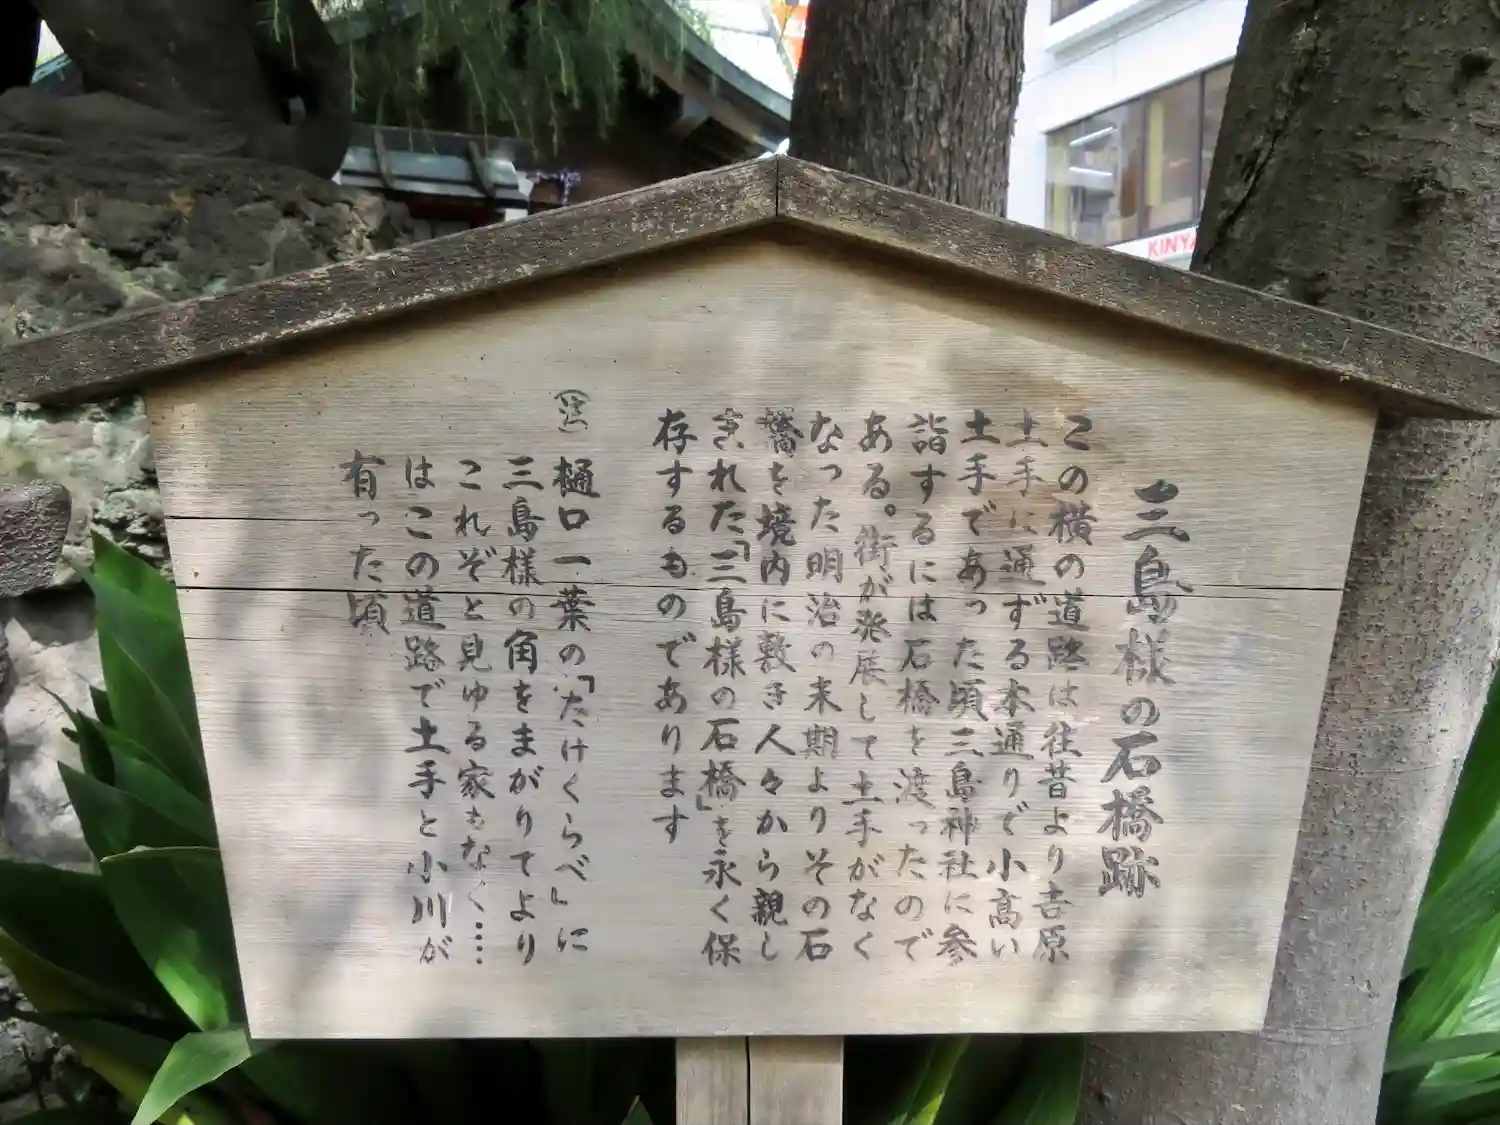 三島様の石橋跡
この横の道路は往昔より吉原
土手に通ずる本通りで小高い
土手であった頃三島神社に参
詣するには石橋を渡ったので
ある。街が発展して土手がなく
なった明治の末期よりその石
橋を境内に敷き人々から親し
まれた「三島様の石橋」を永く保
存するものであります
(注)樋口一葉の「たけくらべ」に
三島様の角をまがりてより
これぞと見ゆる家もなく……
はこの道路で土手と小川が
有った頃
KINY